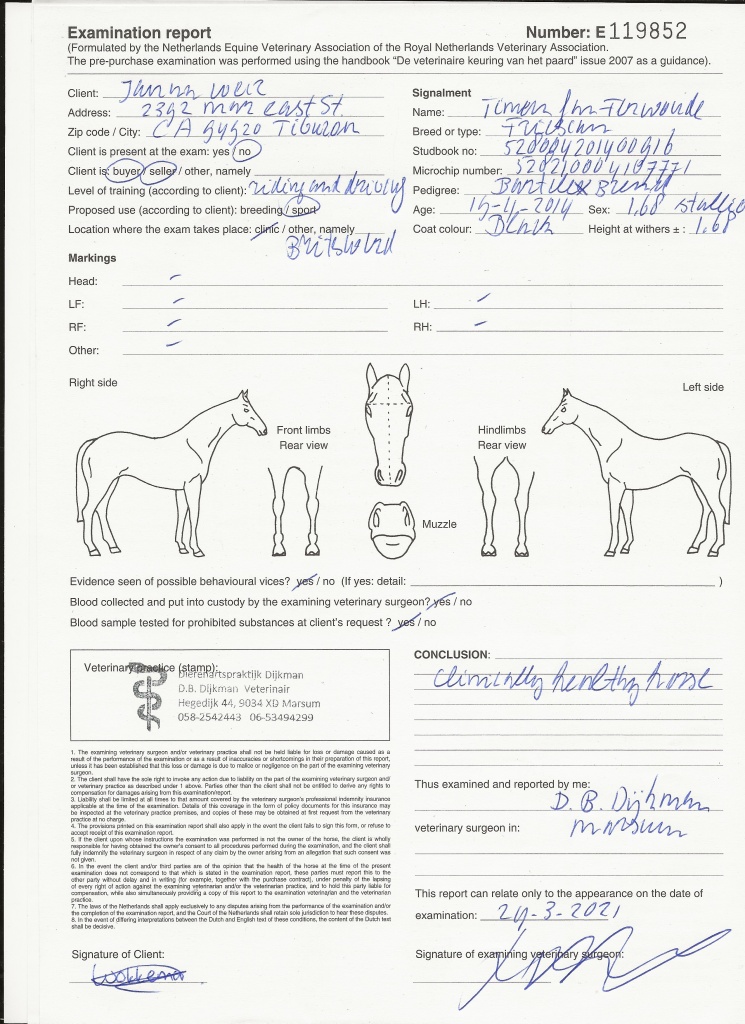 Examination report
Number: E 119852
(Formulated by the Netherlands Equine Veterinary Association of the Royal Netherlands Veterinary Association.
The pre-purchase examination was performed using the handbook "De veterinaire keuring van het paard" issue 2007 as a guidance).
Client:
Address: 2392 mar east St.
Zip code / City: CA 94920 Tiburon
Client is present at the exam: yes / no
Client is: buyer / seller / other, namely
Level of training (according to client): riding and driving
Proposed use (according to client): breeding / sport
Location where the exam takes place: clinic / other, namely
Britswerd
Signalment
Name: Timen
Breed or type: Friesian
Studbook no: 528004201400916
Microchip number:
Pedigree: Bartele x
Age: 2014 Sex: 1.68 stallion
Coat colour: Black Height at withers ± : 1.68
Markings
Head: –
LF: –
LH: –
RF: –
RH: –
Other: –
Right side
Left side
Front limbs
Rear view
Hindlimbs
Rear view
Muzzle
Evidence seen of possible behavioural vices? yes / no (If yes: detail: )
Blood collected and put into custody by the examining veterinary surgeon? yes / no
Blood sample tested for prohibited substances at client's request ? yes / no
Veterinary practice (stamp):
Dierenartspraktijk Dijkman
D.B. Dijkman Veterinair
Hegedijk 44, 9034 XD Marsum
058-2542443 06-53494299
CONCLUSION:
Clinically healthy horse
1. The examining veterinary surgeon and/or veterinary practice shall not be held liable for loss or damage caused as a
result of the performance of the examination or as a result of inaccuracies or shortcomings in their preparation of this report,
unless it has been established that this loss or damage is due to malice or negligence on the part of the examining veterinary
surgeon.
2. The client shall have the sole right to invoke any action due to liability on the part of the examining veterinary surgeon and/
or veterinary practice as described under 1 above. Parties other than the client shall not be entitled to derive any rights to
compensation for damages arising from this examination/report.
3. Liability shall be limited at all times to that amount covered by the veterinary surgeon's professional indemnity insurance
applicable at the time of the examination. Details of this coverage in the form of policy documents for this insurance may
be inspected at the veterinary practice premises, and copies of these may be obtained at first request from the veterinary
practice at no charge.
4. The provisions printed on this examination report shall also apply in the event the client fails to sign this form, or refuse to
accept receipt of this examination report.
5. If the client upon whose instructions the examination was performed is not the owner of the horse, the client is wholly
responsible for having obtained the owner's consent to all procedures performed during the examination, and the client shall
fully indemnify the veterinary surgeon in respect of any claim by the owner arising from an allegation that such consent was
not given.
6. In the event the client and/or third parties are of the opinion that the health of the horse at the time of the present
examination does not correspond to that which is stated in the examination report, these parties must report this to the
other party without delay and in writing (for example, together with the purchase contract), under penalty of the lapsing
of every right of action against the examining veterinarian and/or the veterinary practice, and to hold this party liable for
compensation, while also simultaneously providing a copy of this report to the examination veterinarian and the veterinary
practice.
7. The laws of the Netherlands shall apply exclusively to any disputes arising from the performance of the examination and/or
the completion of the examination report, and the Court of the Netherlands shall retain sole jurisdiction to hear these disputes.
8. In the event of differing interpretations between the Dutch and English text of these conditions, the content of the Dutch text
shall be decisive.
Thus examined and reported by me:
D. B. Dijkman
veterinary surgeon in: Marsum
This report can relate only to the appearance on the date of
examination: 24-3-2021
Signature of Client:
Signature of examining veterinary surgeon: